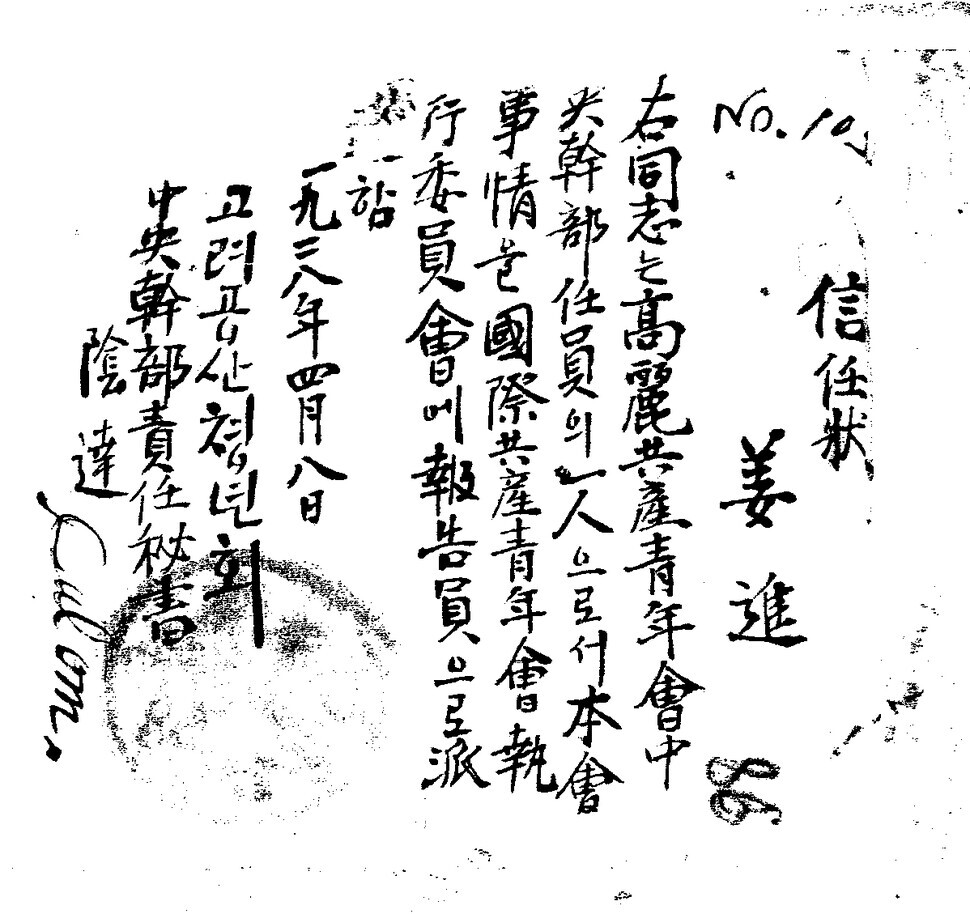 No. 10.
信任狀
姜進
右同志는高麗共產青年會中
央幹部任員의一人으로서本會
事情을國際共產青年會執
行委員會에報告員으로派
함
一九二八年四月八日
고려공산쳥년회
中央幹部責任秘書
陰達